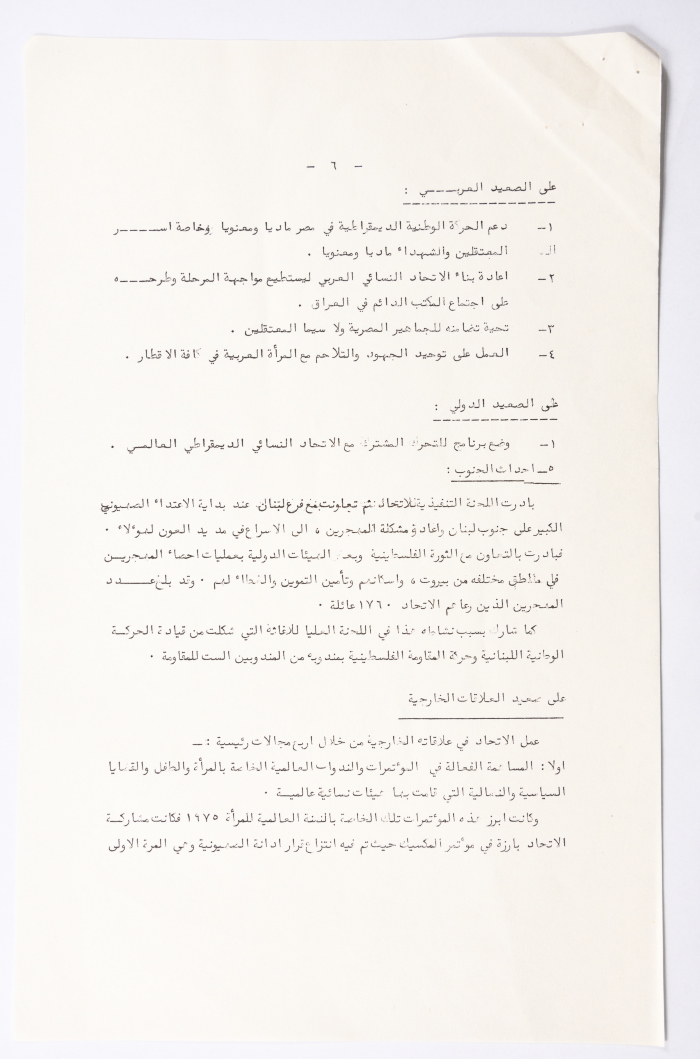 - ٦ -
على الصعيد العربـــي :
١- دعم الحركة الوطنية الديمقراطية في مصر ماديا ومعنويا وخاصة اســـر
المعتقلين والشهداء ماديا ومعنويا .
٢- اعادة بناء الاتحاد النسائي العربي ليستطيع مواجهة المرحلة وطرحـــه
على اجتماع المكتب الدائم في العراق .
٣- تحية تضامنه للجماهير المصرية ولا سيما المعتقلين .
٤- العمل على توحيد الجهود، والتلاحم مع المرأة العربية في كافة الاقطار .
على الصعيد الدولي :
١- وضع برنامج للتحرك المشترك مع الاتحاد النسائي الديمقراطي العالمـي .
٥- احداث الجنوب :
بادرت اللجنة التنفيذية للاتحاد ثم تعاونت مع فرع لبنان عند بداية الاعتداء الصهيوني
الكبير على جنوب لبنان واعادة مشكلة المهجرين ، الى الاسراع في مد يد العون لهؤلاء .
فبادرت بالتعاون من الثورة الفلسطينية وبعض الهيئات الدولية بعمليات احصاء المهجريـن
في مناطق مختلفه من بيروت ، واسكانهم وتأمين التموين والغطاء لهم . وقد بلغ عـــدد
المهجرين الذين رعاهم الاتحاد ١٧٦٠ عائلة .
كما شارك بسبب نشاطه هذا في اللجنة العليا للاغاثة التي شكلت من قيادة الحركـة
الوطنية اللبنانية وحركة المقاومة الفلسطينية بمندوبه من المندوبين الست للمقاومة .
على صعيد العلاقات الخارجية
عمل الاتحاد في علاقاته الخارجية من خلال اربع مجالات رئيسية : ــ
اولا : المساهمة الفعالة في المؤتمرات والندوات العالمية الخاصة بالمرأة والطفل والقضايا
السياسية والنضالية التي قامت بها هيئات نسائية عالميـة .
وكانت ابرز هذه المؤتمرات تلك الخاصة بالسنة العالمية للمرأة ١٩٧٥ فكانت مشاركـة
الاتحاد بارزة في مؤتمر المكسيك حيث تم فيه انتزاع قرار ادانة الصهيونية وهي المرة الاولى